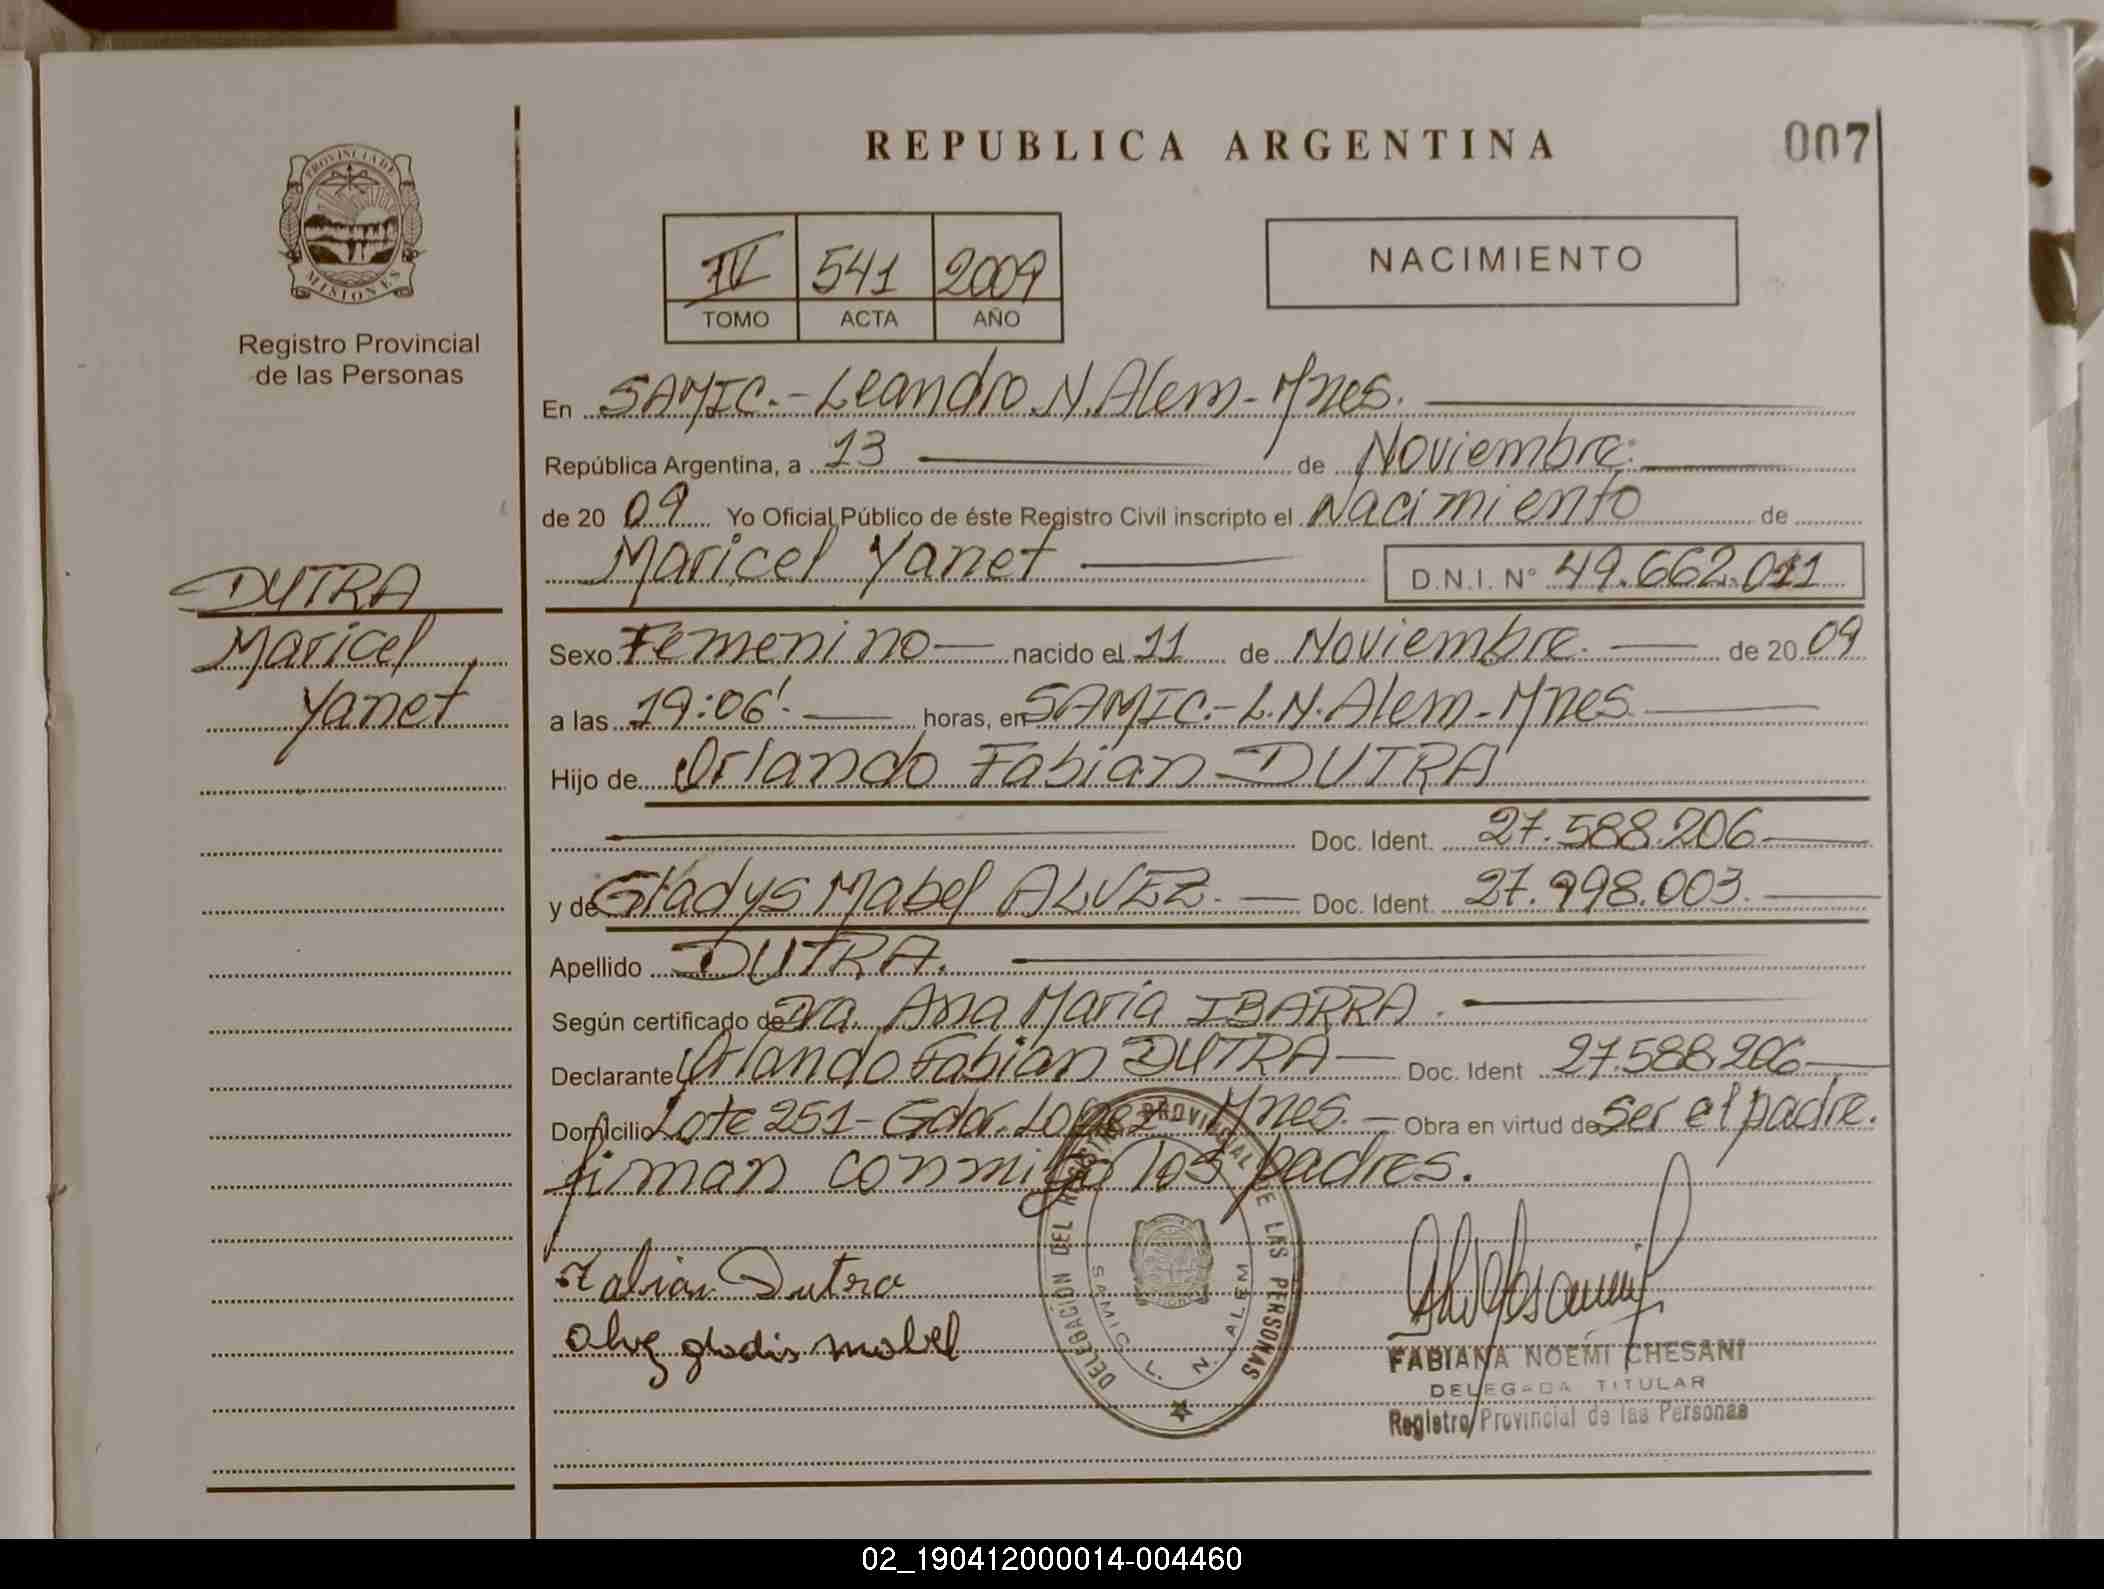 REPUBLICA ARGENTINA
007
PROVINCIA DE
MISIONES
Registro Provincial
de las Personas
IV 541 2009
TOMO ACTA AÑO
NACIMIENTO
En SAMIC.- Leandro N. Alem - Mnes.
República Argentina, a 13 de Noviembre.
de 20 09 Yo Oficial Público de éste Registro Civil inscripto el Nacimiento de
Maricel Yanet D.N.I. N° 49.662.011
DUTRA
Maricel
Yanet
Sexo Femenino nacido el 11 de Noviembre. de 20 09
a las 19:06'. horas, en SAMIC.- L.N. Alem - Mnes
Hijo de Orlando Fabian DUTRA
Doc. Ident. 27.588.206
y de Gladys Mabel ALVEZ. Doc. Ident. 27.998.003.
Apellido DUTRA.
Según certificado de Dra. Ana Maria IBARRA.
Declarante Orlando Fabian DUTRA Doc. Ident 27.588.206
Domicilio Lote 251 - Gdor. Lopez Mnes. Obra en virtud de ser el padre.
firman conmigo los padres.
Fabian Dutra
Alvez gladis mabel
DELEGACION DEL REGISTRO PROVINCIAL DE LAS PERSONAS
SAMIC L. N. ALEM
FABIANA NOEMI CHESANI
DELEGADA TITULAR
Registro Provincial de las Personas
02_190412000014-004460